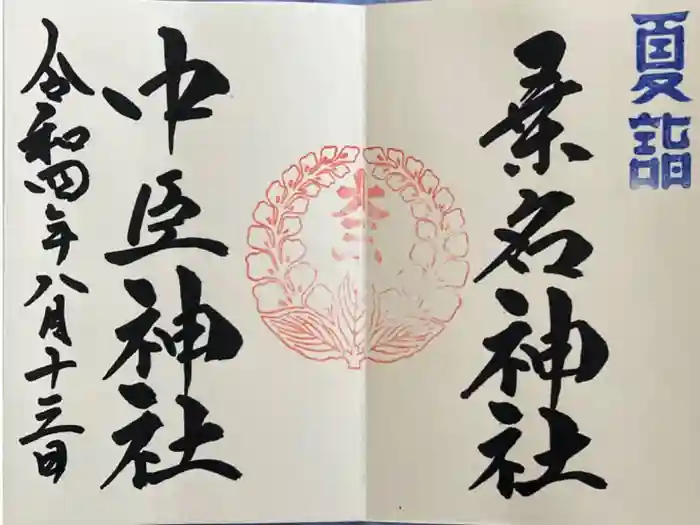 夏詣
桑名神社
中臣神社
令和四年八月十三日